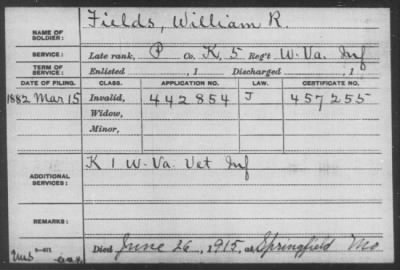 NAME OF SOLDIER: Fields, William R.
SERVICE: Late rank, P Co. K, 5 Reg't W. Va. Inf
TERM OF SERVICE: Enlisted , 1 Discharged , 1
DATE OF FILING. CLASS. APPLICATION NO. LAW. CERTIFICATE NO.
1882 Mar 15 Invalid, 442854 J 457255
Widow,
Minor,
ADDITIONAL SERVICES: K 1 W. Va. Vet Inf
REMARKS:
Died June 26, 1915, at Springfield Mo